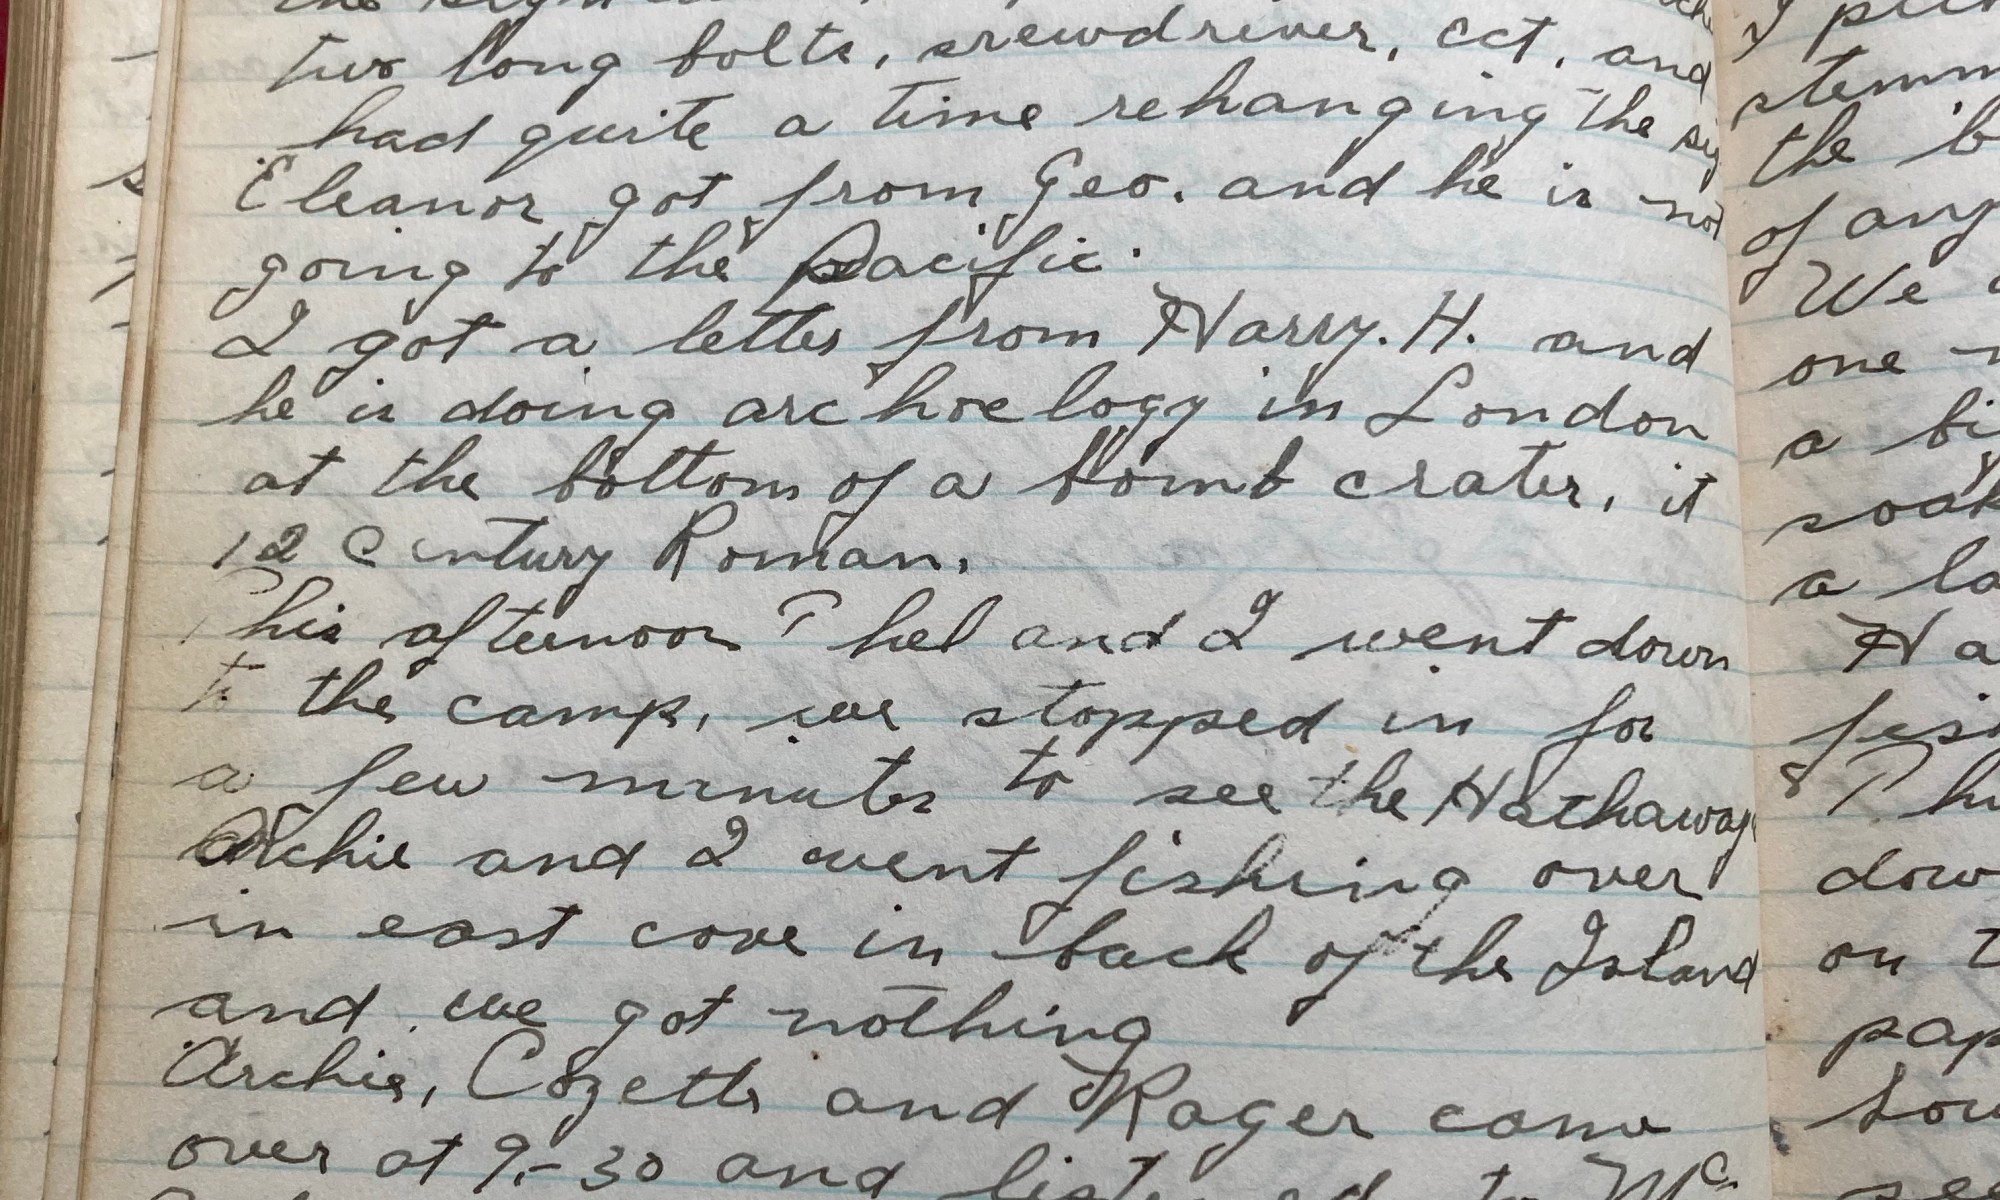 two long bolts, srewdriver, ect, and
had quite a time rehanging the
Eleanor got from Geo. and he is not
going to the Pacific.
I got a letter from Harry. H. and
he is doing archoelogy in London
at the bottom of a bomb crater, it
12 century Roman.
This afternoon Thel and I went down
to the camp, we stopped in for
a few minutes to see the Hathaways
Archie and I went fishing over
in east cove in back of the Island
and we got nothing
Archie, Cozette and Rager came
over at 9-30 and listened to Mc
I
stemm
the
of any
We
one
a
soak
a
Ha
down
on